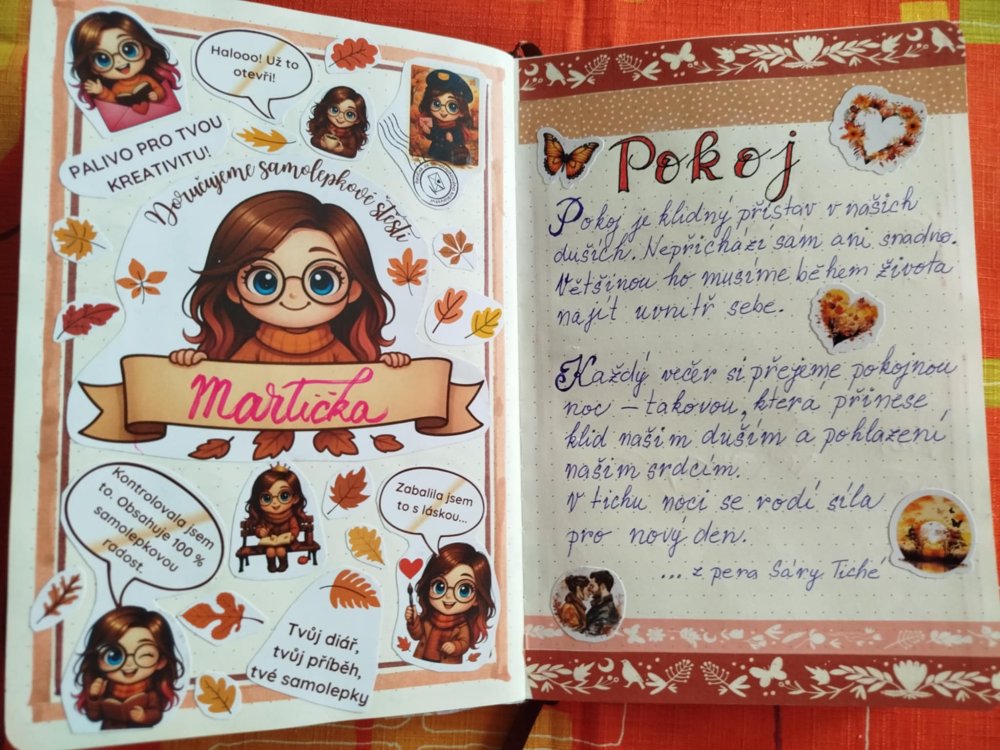 Halooo! Už to
otevři!
PALIVO PRO TVOU
KREATIVITU!
Doručujeme samolepkové štěstí
Martička
Kontrolovala jsem
to. Obsahuje 100 %
samolepkovou
radost.
Zabalila jsem
to s láskou...
Tvůj diář,
tvůj příběh,
tvé samolepky
Pokoj
Pokoj je klidný přístav v našich
duších. Nepřichází sám ani snadno.
Většinou ho musíme během života
najít uvnitř sebe.
Každý večer si přejeme pokojnou
noc – takovou, která přinese
klid našim duším a pohlazení
našim srdcím.
V tichu noci se rodí síla
pro nový den.
... z pera Sáry Tiché